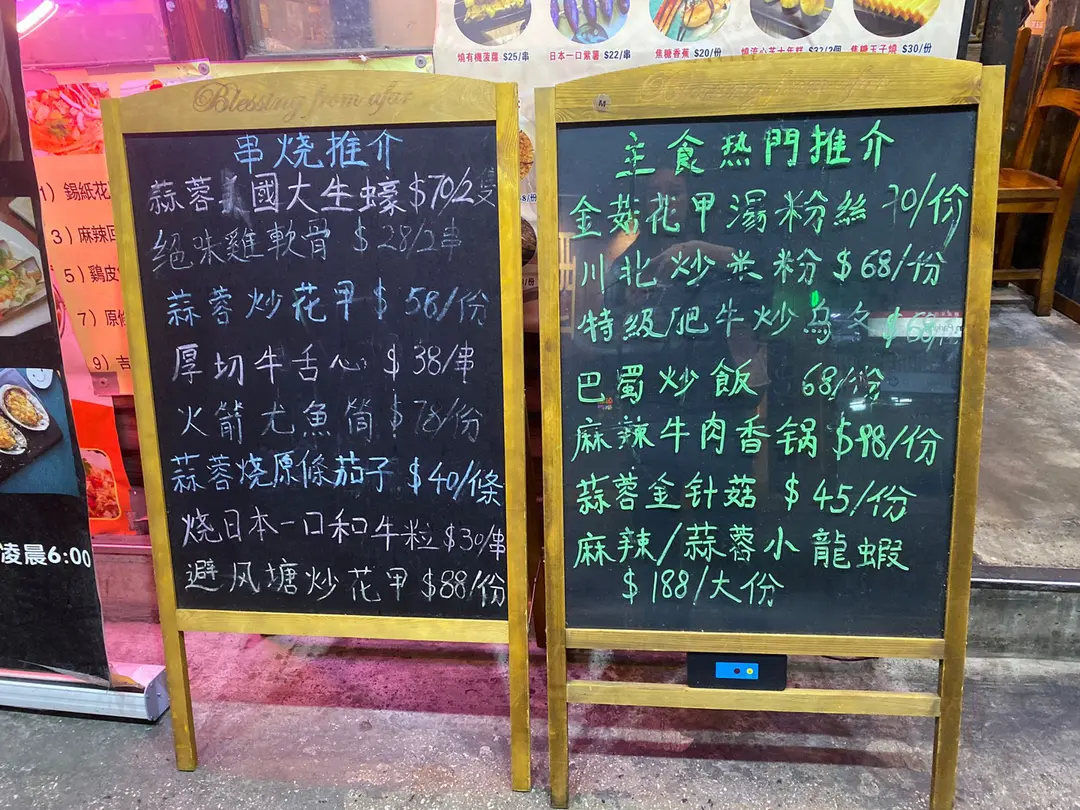 燒有機菠蘿 $25/串
日本一口紫薯 $22/串
焦糖香蕉 $20/份
焦糖玉子燒 $30/份
1）錫紙花
3）麻辣
5）鷄皮
7）原條
9）吉
凌晨6:00
Blessing from afar
串烧推介
蒜蓉美國大生蠔 $70/2隻
絕味雞軟骨 $28/2串
蒜蓉炒花甲 $58/份
厚切牛舌心 $38/串
火箭尤魚筒 $78/份
蒜蓉烧原條茄子 $40/條
烧日本一口和牛粒 $30/串
避风塘炒花甲 $88/份
主食热門推介
金菇花甲湯粉絲 70/份
川北炒米粉 $68/份
特級肥牛炒烏冬 $68/
巴蜀炒飯 68/份
麻辣牛肉香锅 $98/份
蒜蓉金针菇 $45/份
麻辣/蒜蓉小龍蝦
$188/大份